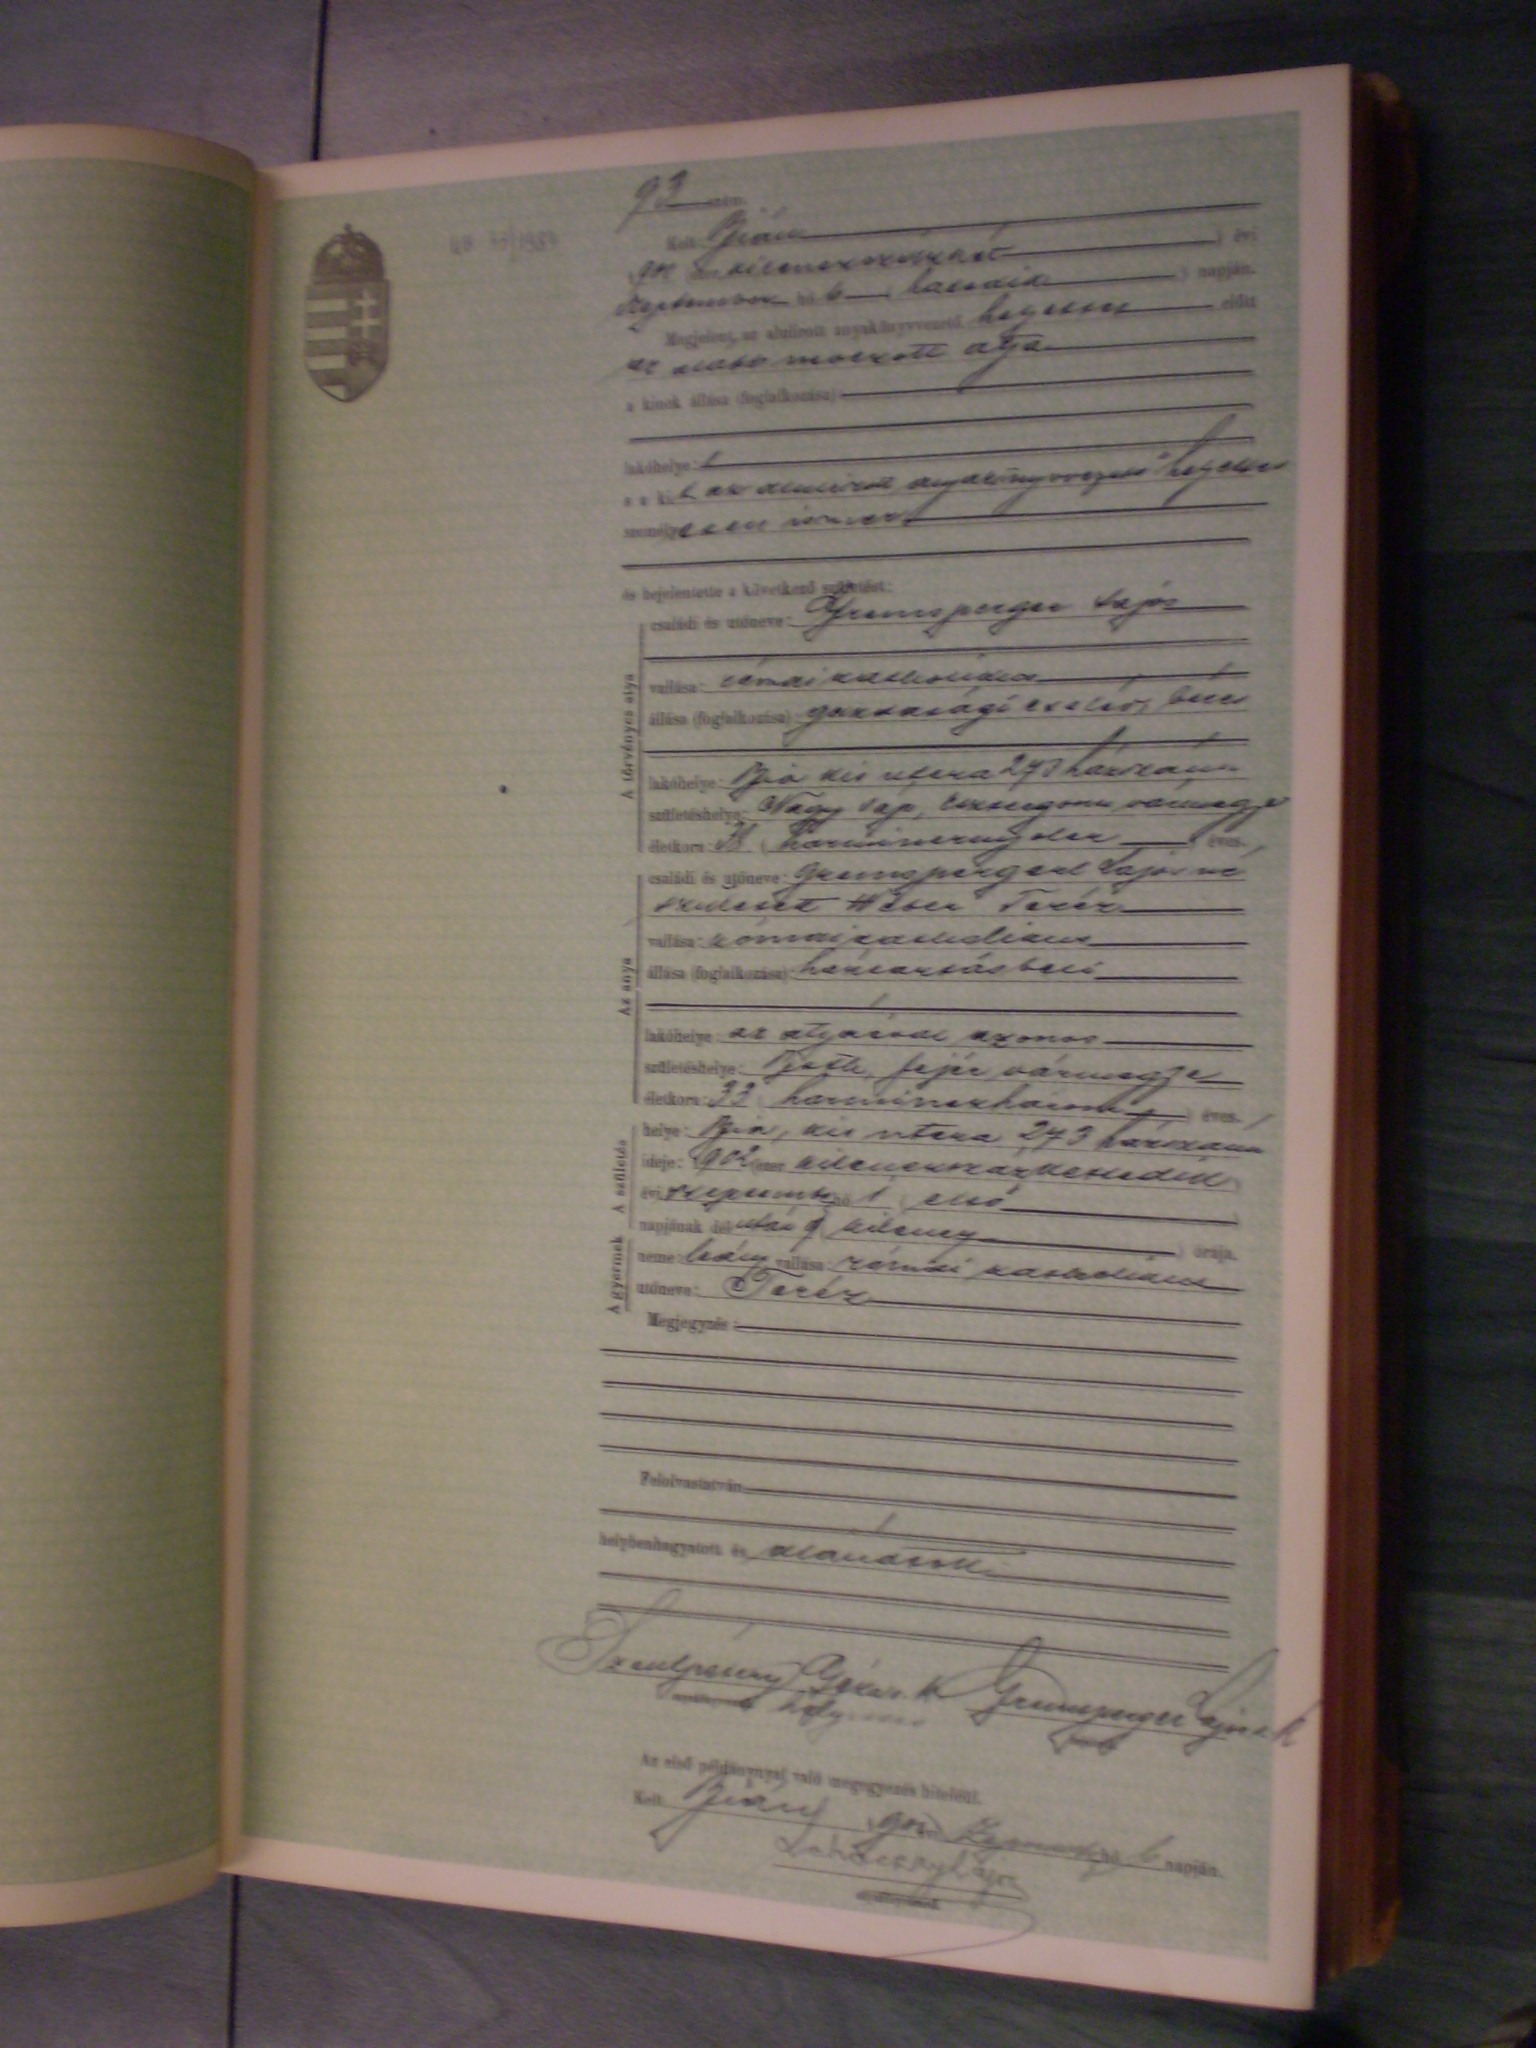 93 szám.
Kelt: Bián
902 kilencszázkettő ) évi
Szeptember hó 6 ( hatodik ) napján.
Megjelent az alulírott anyakönyvvezető helyettes előtt
az alább nevezett atya
a kinek állása (foglalkozása):
lakóhelye:
s a kit az alulírott anyakönyvvezető helyettes
személyesen ismer,
és bejelentette a következő születést:
A törvényes atya
családi és utóneve: Lajos
vallása: római katholikus
állása (foglalkozása): gazdasági cseléd, béres
lakóhelye: Bia kis utcza 273 házszám
születéshelye: Nagy Sáp, Esztergom vármegye
életkora: 38 ( harmincznyolcz ) éves.
Az anya
családi és utóneve: Lajosné
született Weber Teréz
vallása: római katholikus
állása (foglalkozása): háztartásbeli
lakóhelye: az atyáéval azonos
születéshelye: fejér vármegye
életkora: 33 ( harminczhárom ) éves.
A születés
helye: Bia, kis utcza 273 házszám
ideje: 1902 (ezer kilenczszázkettedik )
évi szeptember hó 1 ( első )
napjának délután 9 kilencz ) órája.
A gyermek
neme: leány vallása: római katholikus
utóneve: Teréz
Megjegyzés:
Felolvastatván,
helybenhagyatott és aláíratott.
Az első példánynyal való megegyezés hiteléül.
Kelt Bián, 902 Szeptember hó 6 napján.